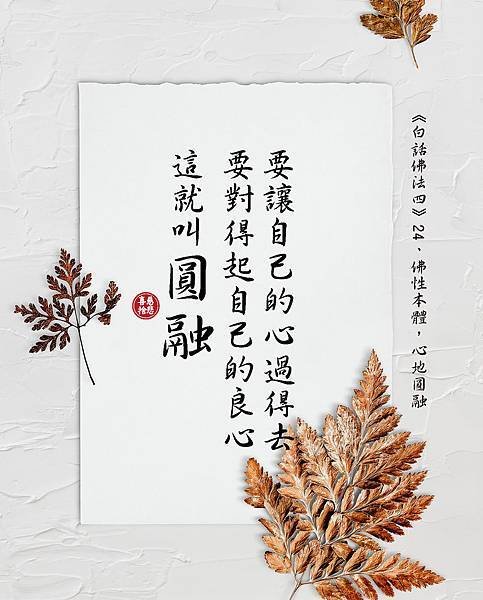 《白話佛法四》24、佛性本體，心地圓融
要讓自己的心過得去
要對得起自己的良心
這就叫圓融
慈悲
喜捨